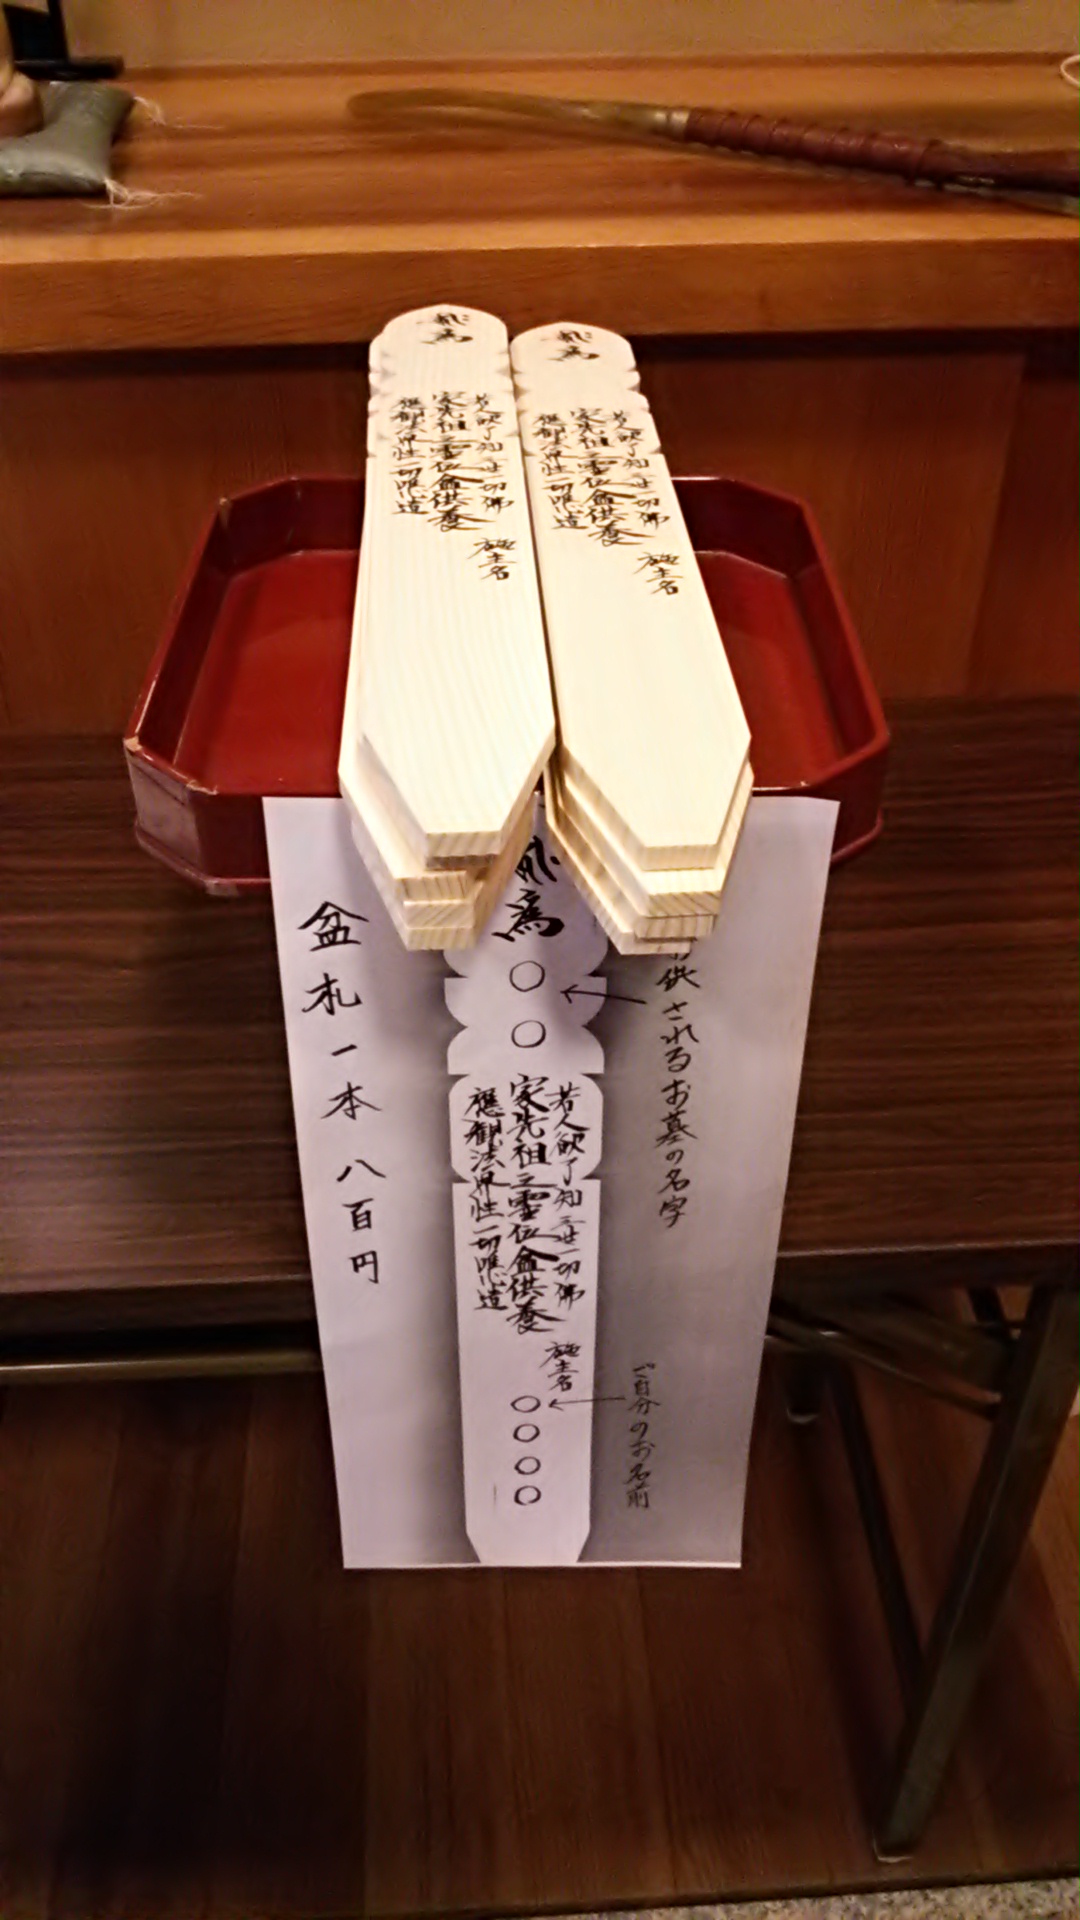 為
若人欲了知三世一切佛
家先祖之霊位盆供養
應観法界性一切唯心造
施主名
為
若人欲了知三世一切佛
家先祖之霊位盆供養
應観法界性一切唯心造
施主名
供されるお墓の名字
ご自分のお名前
為
○○
若人欲了知三世一切佛
家先祖之霊位盆供養
應観法界性一切唯心造
施主名
○○○○
盆札一本八百円